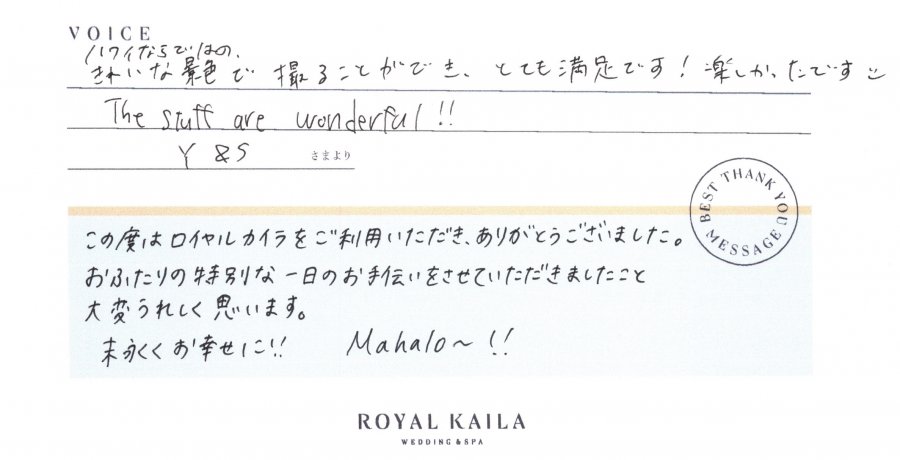 VOICE
ハワイならではの、
きれいな景色で撮ることができ、とても満足です！楽しかったです
The stuff are wonderful!!
Y & S さまより
BEST THANK YOU MESSAGE
この度はロイヤルカイラをご利用いただき、ありがとうございました。
おふたりの特別な一日のお手伝いをさせていただきましたこと
大変うれしく思います。
末永くお幸せに!! Mahalo〜!!
ROYAL KAILA
WEDDING & SPA